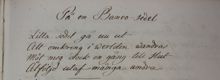 På en Banco sedel
Lilla sedel gå nu ut
Att omkring i werlden wandra
Måt neg dock en gång till Slut
Åtföljd utaf många andra